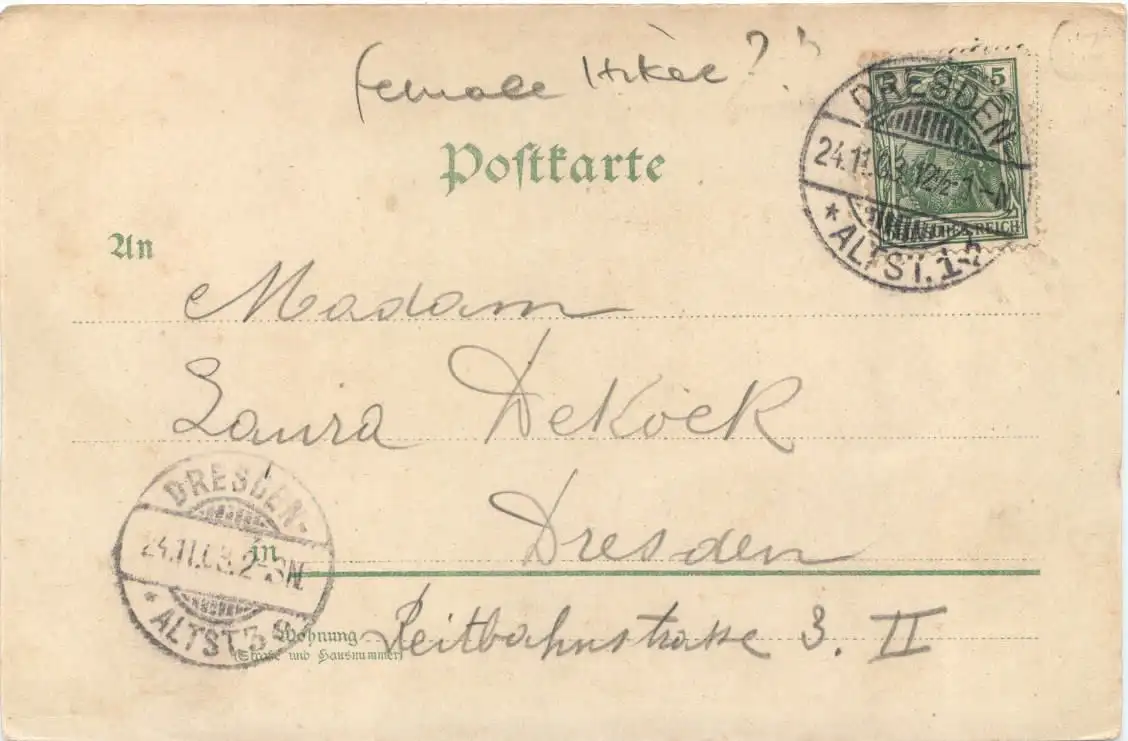 female Hiker?
5
DRESDEN
24.11.03.12½-1-N
* ALTST. 1
REICH
Postkarte
An
Madam
Laura DeKock
DRESDEN-
24.11.03.2-3N.
* ALTST. 3
in Dresden
Wohnung Reitbahnstrasse 3. II
(Straße und Hausnummer)